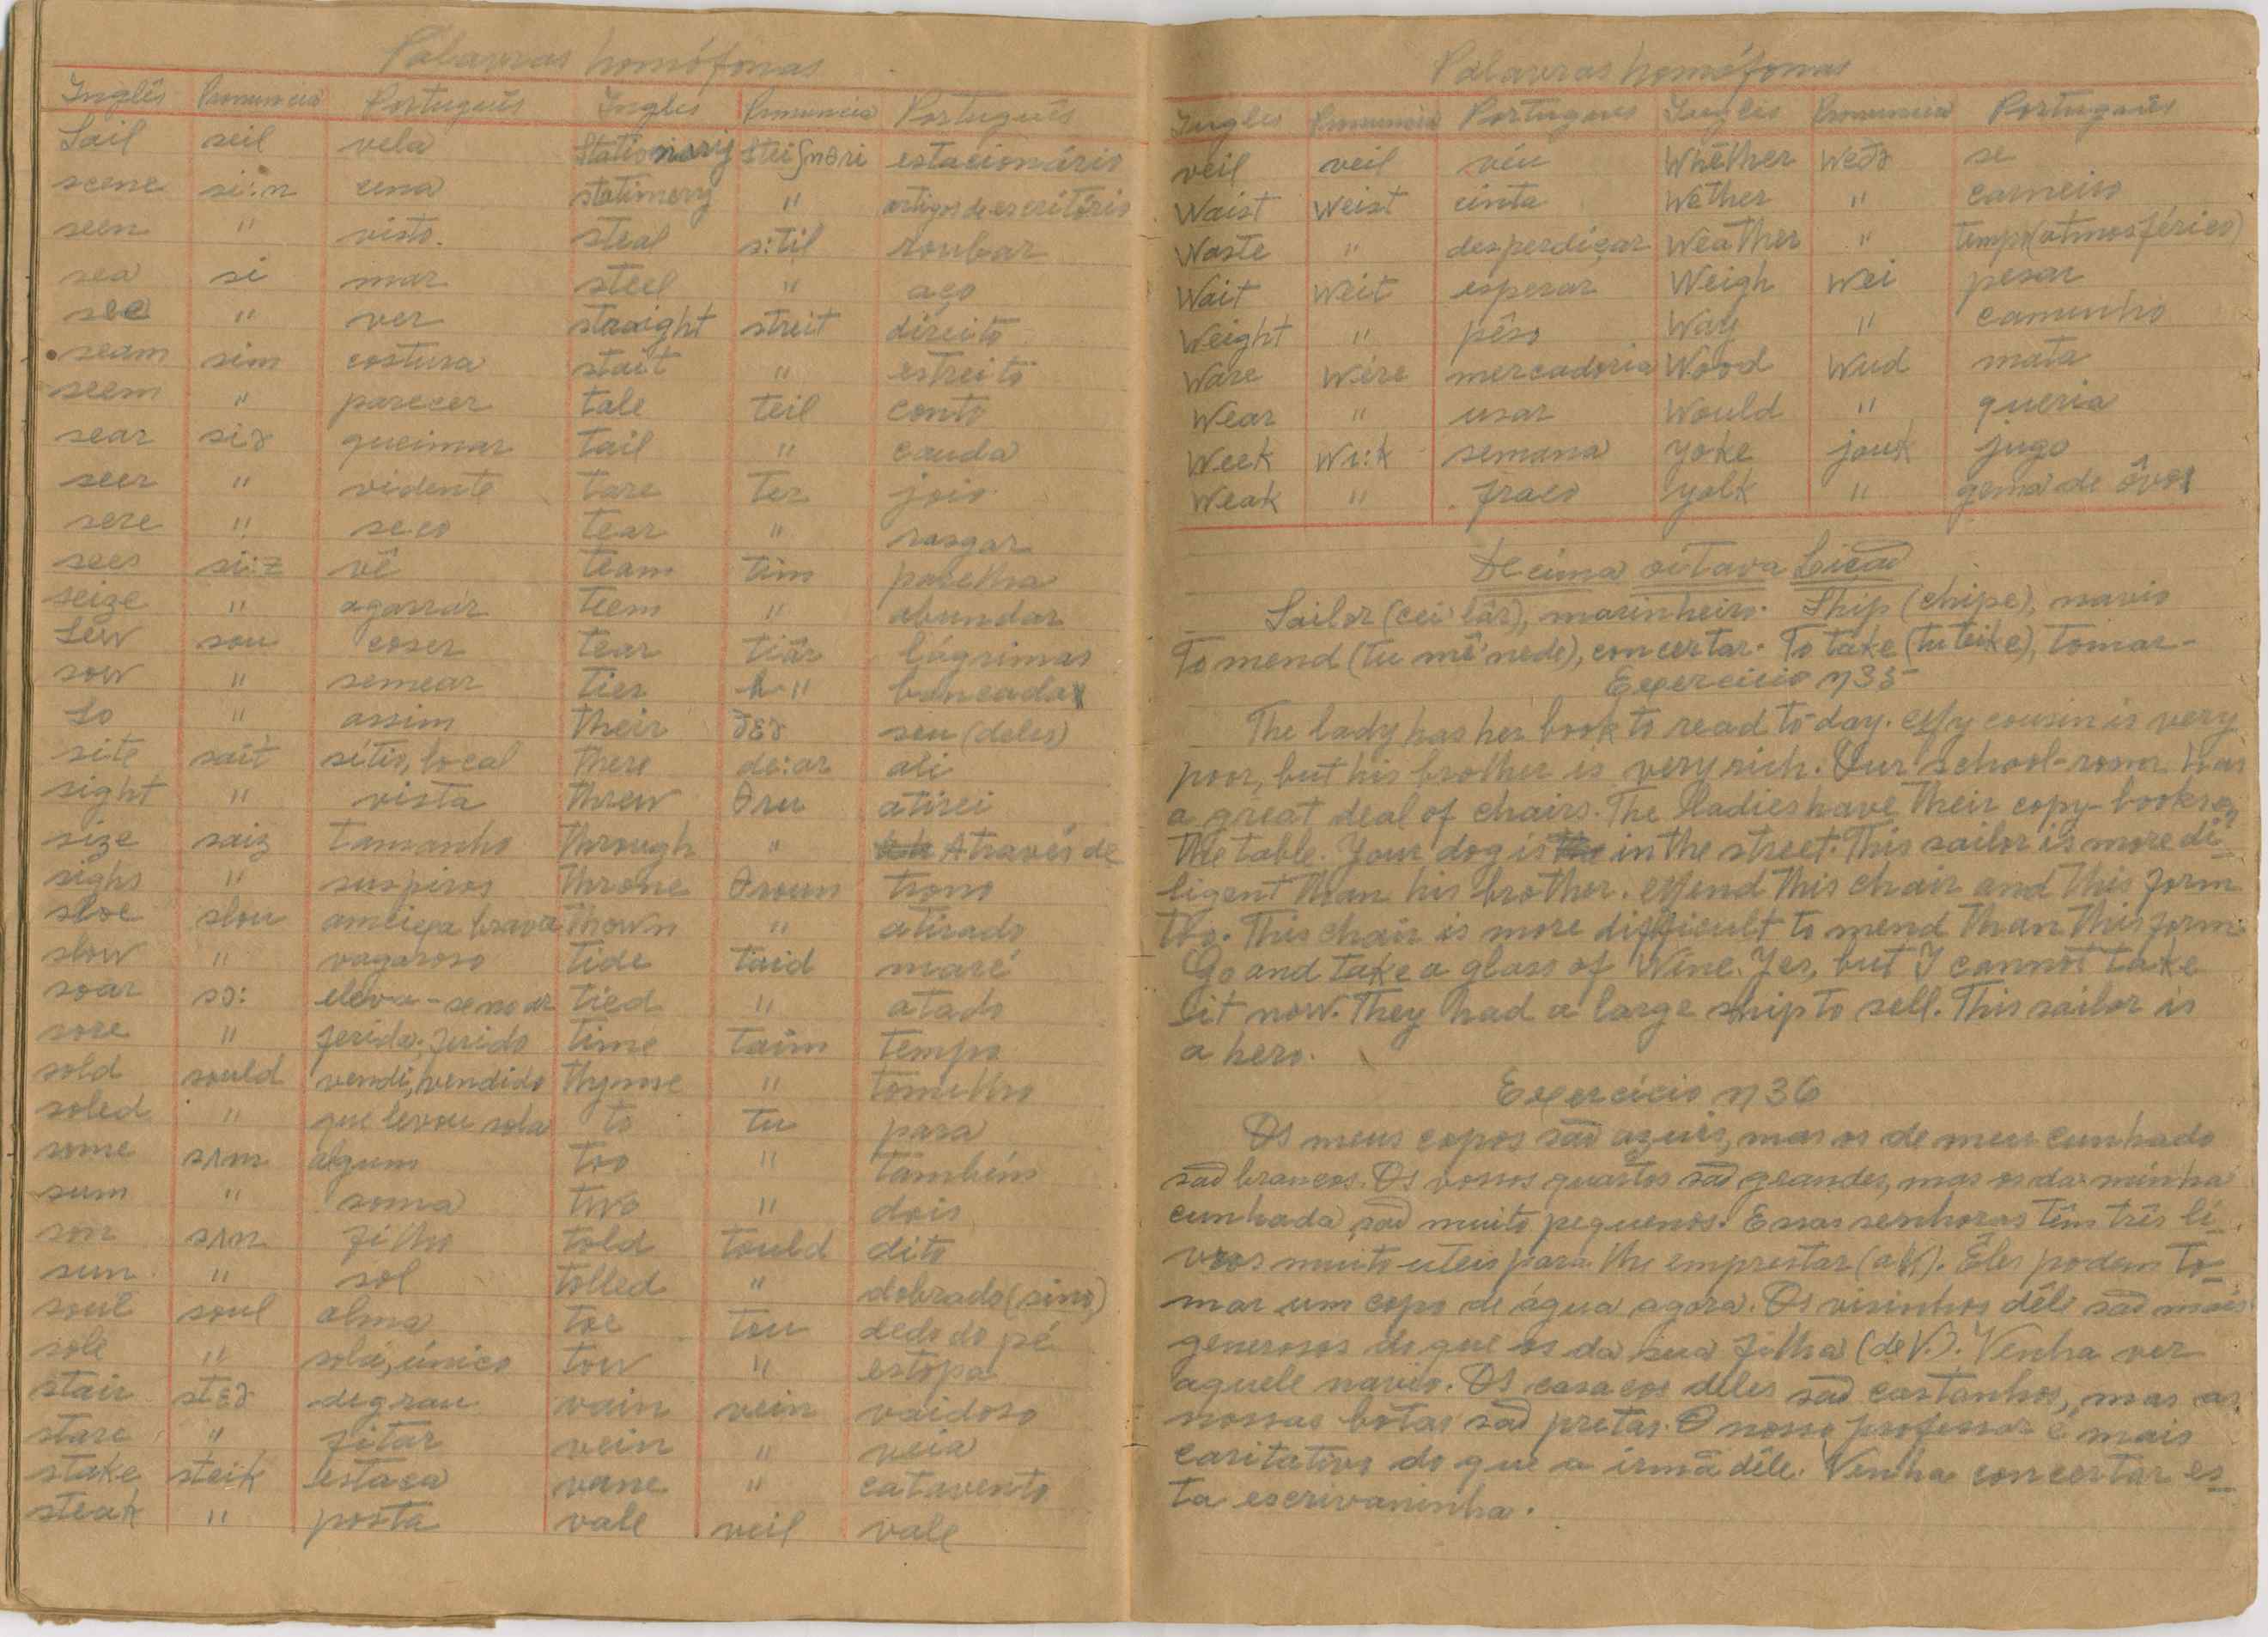 Palavras homófonas
Inglês Pronuncia Português Ingles Pronuncia Português
Sail seil vela Stationary steiʃnəri estacionário
scene si:n cena stationery " artigos de escritório
seen " visto. steal s:til roubar
sea si mar steel " aço
see " ver straight streit direito
seam sim costura stait " estreito
seem " parecer tale teil conto
sear siə queimar tail " cauda
seer " vidente tare ter joio
sere " seco tear " rasgar
sees si:z vê team tim parelha
seize " agarrar teem " abundar
Sew sou coser tear tiãr lágrimas
sow " semear tier " bancada
So " assim their ðɛə seu (deles)
site sait sítio, local there de:ar ali
sight " vista threw θru atirei
size saiz tamanho through " Através de
sighs " suspiros throne θroun trono
sloe slou ameixa brava thown " atirado
slow " vagaroso tide taid maré
soar sɔ: eleva-se no ar tied " atado
sore " ferida, ferido time taim tempo
sold sould vendi, vendido thyme " tomilho
soled " que levou sola to tu para
some sʌm algum too " também
sum " soma two " dois
son sʌn filho told tould dito
sun " sol tolled " dobrado (sino)
soul soul alma toe tou dedo do pé
sole " sola, único tow " estopa
stair stɛə degrau vain vein vaidoso
stare " fitar vein " veia
stake steik estaca vane " catavento
steak " posta vale veil vale
Palavras homófonas
Ingles Pronuncia Portugues Inglês Pronuncia Português
veil veil véu Whether weðə se
Waist weist cinta Wether " carneiro
Waste " desperdiçar Weather " tempo (atmosférico)
Wait weit esperar Weigh wei pesar
Weight " pêso Way " caminho
Ware wére mercadoria Wood wud mata
Wear " usar Would " queria
Week wi:k semana yoke jouk jugo
Weak " fraco yolk " gema de ôvo
Decima oitava Licaõ
Sailor (cei'lár), marinheiro. Ship (chipe), navio
To mend (tu mê'nede), concertar. To take (tu teike), tomar-
Exercicio n 35
The lady has her book to read to-day. My cousin is very
poor, but his brother is very rich. Our school-room has
a great deal of chairs. The ladies have their copy-books on
the table. Your dog is the in the street. This sailor is more di-
ligent than his brother. Mend this chair and this form
too. This chair is more difficult to mend than this form.
Go and take a glass of Wine. Yes, but I cannot take
it now. They had a large ship to sell. This sailor is
a hero.
Exercício n 36
Os meus copos saõ azues, mas os de meu cunhado
saõ brancos. Os vossos quartos saõ grandes, mas os da minha
cunhada saõ muito pequenos. Essas senhoras têm três li-
vros muito uteis para lhe emprestar (a V.). Êles podem to-
mar um copo de água agora. Os visinhos dêle saõ mais
generosos do que os da sua filha (de V.). Venha ver
aquele navio. Os casacos dêles saõ castanhos, mas as
nossas botas saõ pretas. O nosso professor é mais
caritativo do que a irmã dêle. Venha concertar es-
ta escrivaninha.